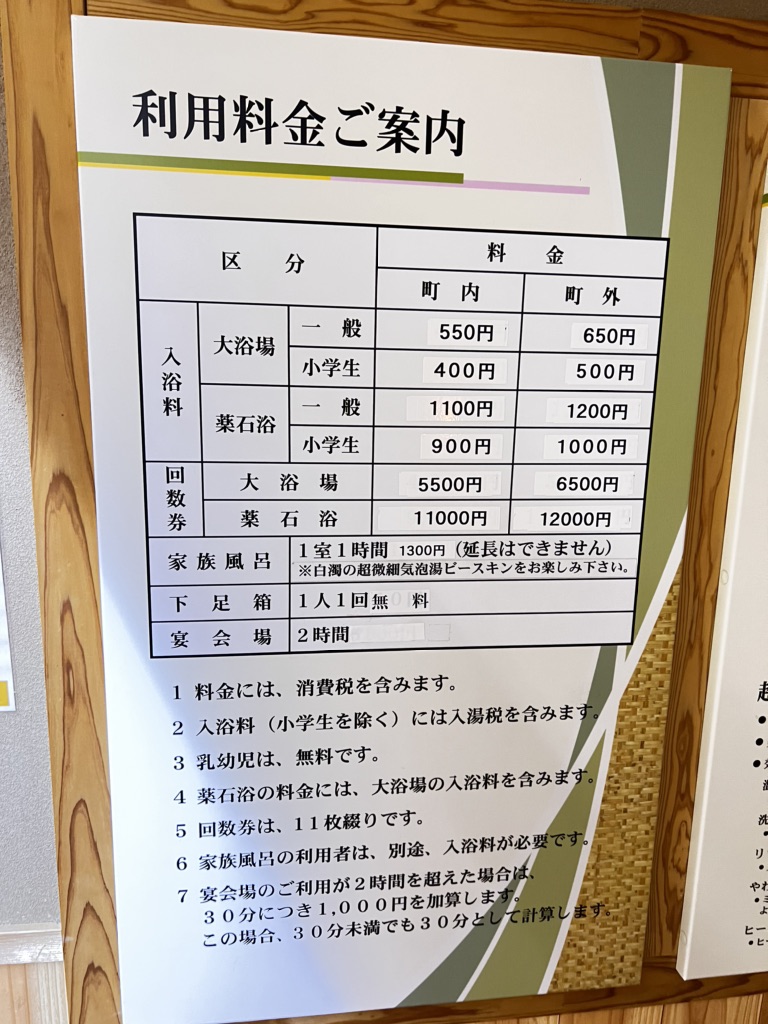 利用料金ご案内
区　分
料　金
町　内
町　外
入浴料
大浴場
一　般
550円
650円
小学生
400円
500円
薬石浴
一　般
1100円
1200円
小学生
900円
1000円
回数券
大　浴　場
5500円
6500円
薬　石　浴
11000円
12000円
家 族 風 呂
1室1時間 1300円（延長はできません）
※白濁の超微細気泡湯ピースキンをお楽しみ下さい。
下　足　箱
1人1回無　料
宴　会　場
2時間
1 料金には、消費税を含みます。
2 入浴料（小学生を除く）には入湯税を含みます。
3 乳幼児は、無料です。
4 薬石浴の料金には、大浴場の入浴料を含みます。
5 回数券は、11枚綴りです。
6 家族風呂の利用者は、別途、入浴料が必要です。
7 宴会場のご利用が2時間を超えた場合は、
30分につき1,000円を加算します。
この場合、30分未満でも30分として計算します。